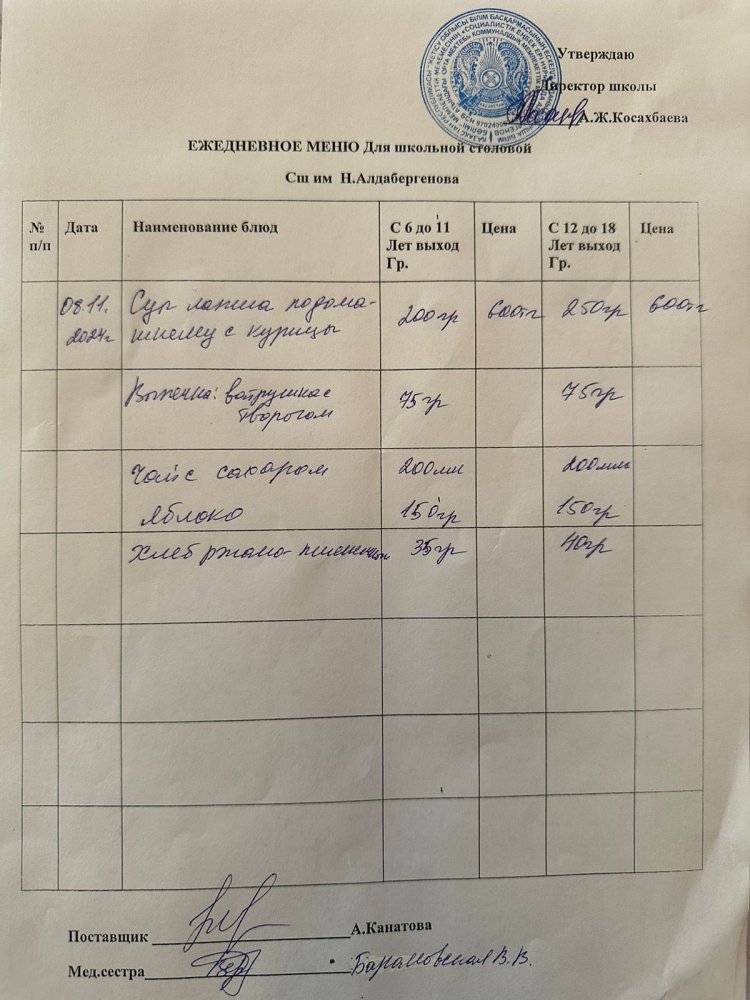 Утверждаю
Директор школы
А.Ж.Косахбаева
ЕЖЕДНЕВНОЕ МЕНЮ Для школьной столовой
Сш им Н.Алдабергенова
№ п/п Дата Наименование блюд С 6 до 11 Лет выход Гр. Цена С 12 до 18 Лет выход Гр. Цена
08.11. Суп лапша подома-
2024г шнему с курицы 200гр 600тг 250гр 600тг
Выпечка: ватрушка с
творогом 75гр 75гр
Чай с сахаром 200мл 200мл
Яблоко 150гр 150гр
Хлеб ржано-пшеничный 35гр 40гр
Поставщик А.Канатова
Мед.сестра Барановская В.В.